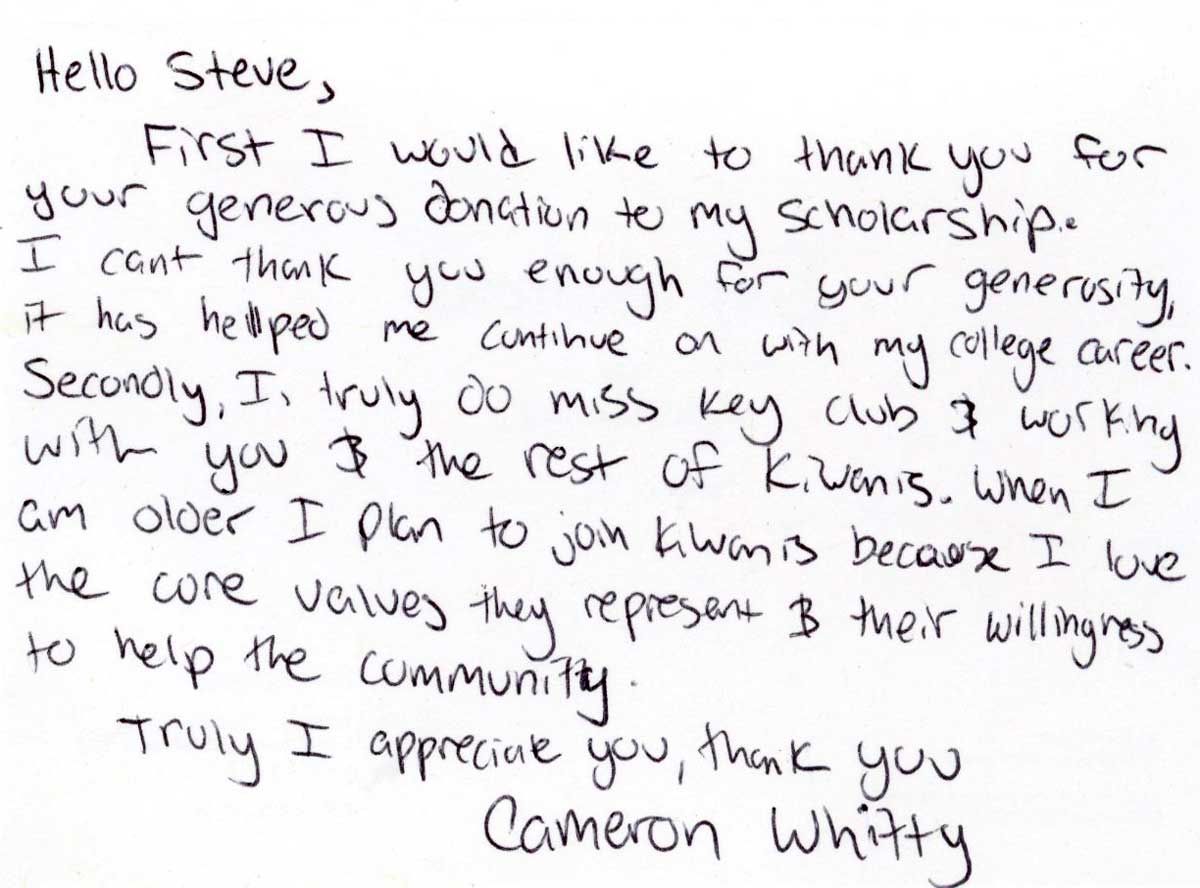 Hello Steve,
First I would like to thank you for
your generous donation to my scholarship.
I cant thank you enough for your generosity,
it has hellped me continue on with my college career.
Secondly, I, truly do miss key club & working
with you & the rest of Kiwanis. When I
am older I plan to join Kiwanis because I love
the core values they represent & their willingness
to help the community.
Truly I appreciate you, thank you
Cameron Whitty